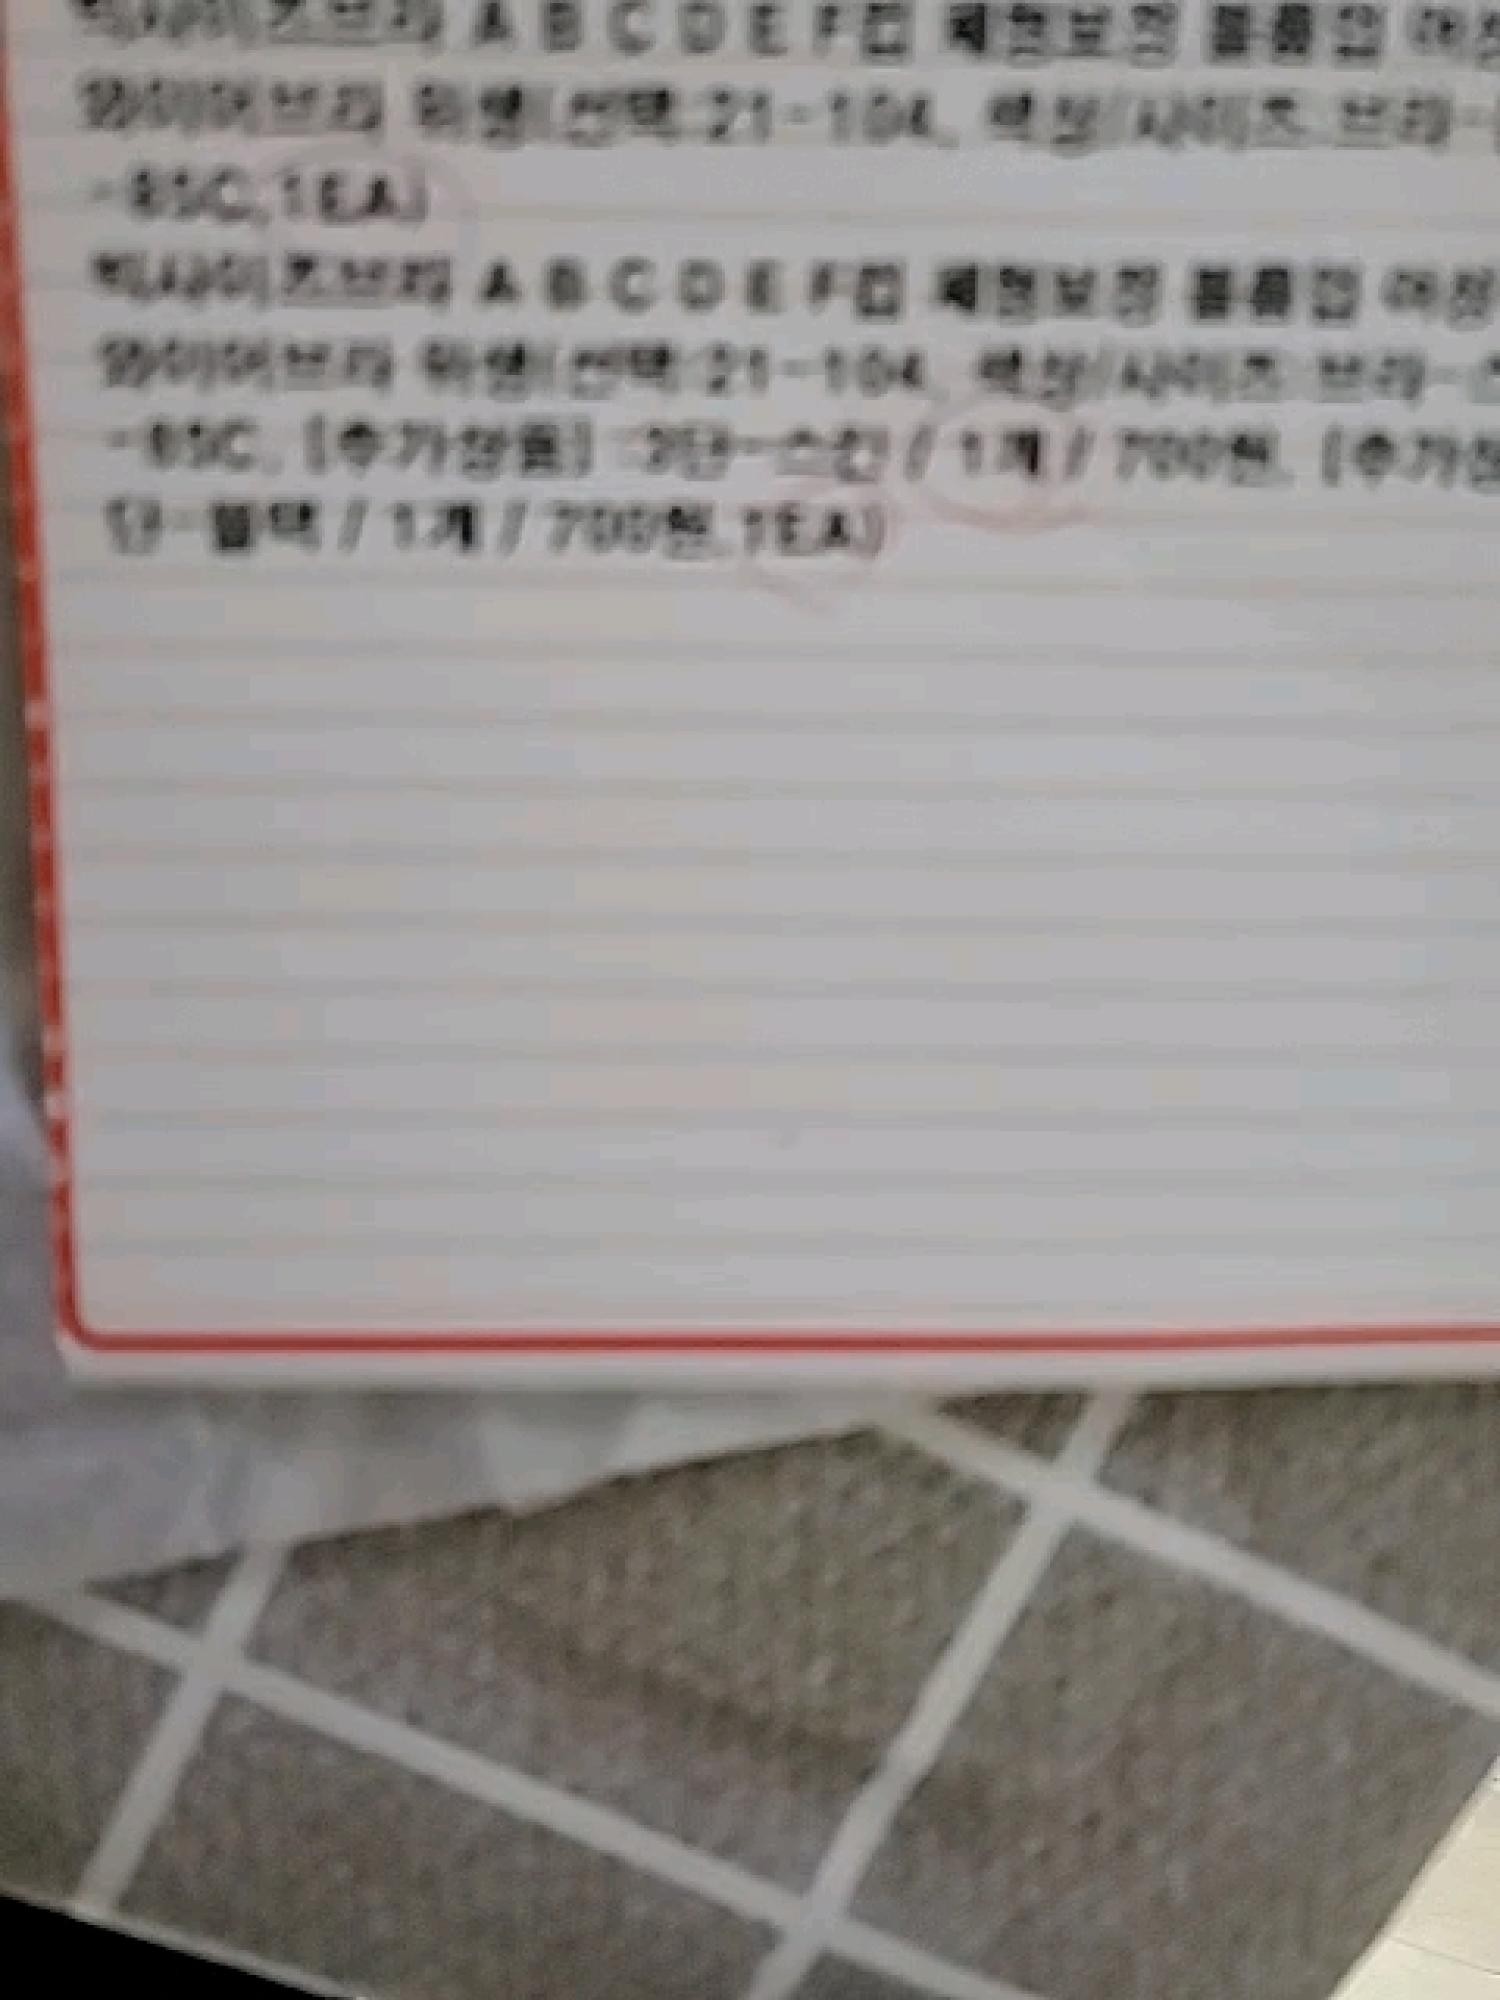 빅사이즈브라 A B C D E F컵 체형보정 볼륨업 여성
와이어브라 위생(선택:21-104, 색상/사이즈:브라-
-85C,1EA)
빅사이즈브라 A B C D E F컵 체형보정 볼륨업 여성
와이어브라 위생(선택:21-104, 색상/사이즈:브라-스
-85C, [추가상품] :3단-스킨 / 1개 / 700원, [추가상
단-블랙 / 1개 / 700원,1EA)